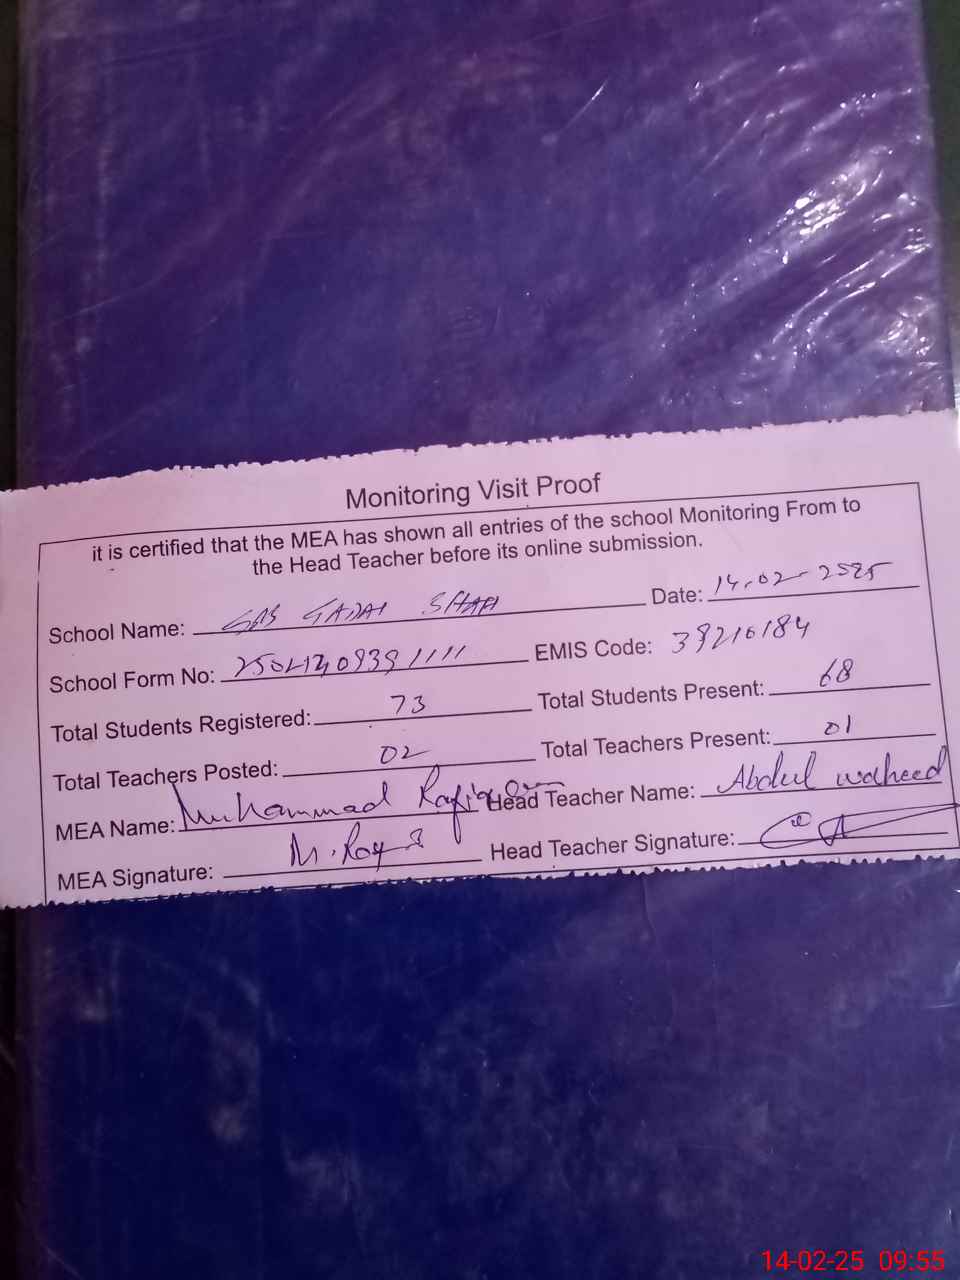 Monitoring Visit Proof
it is certified that the MEA has shown all entries of the school Monitoring From to
the Head Teacher before its online submission.
School Name: GPS GADAI SHAH Date: 14-02-2025
School Form No: EMIS Code: 38210184
Total Students Registered: 73 Total Students Present: 68
Total Teachers Posted: 02 Total Teachers Present: 01
MEA Name: Muhammad Rafique Head Teacher Name: Abdul waheed
MEA Signature: Head Teacher Signature:
14-02-25 09:55